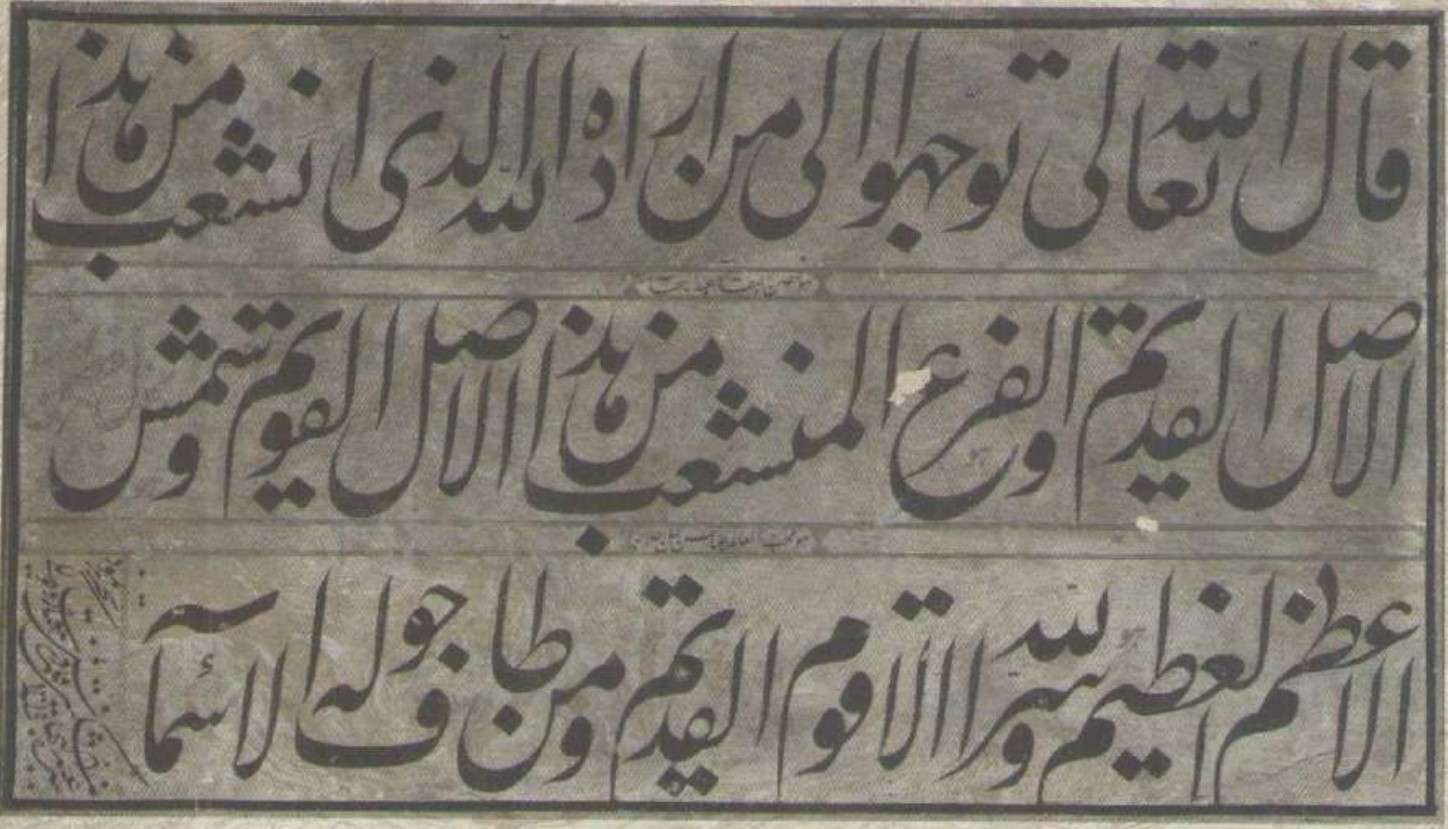 قال الله تعالى توجهوا الى من اراده الله الذى انشعب من هذا
الاصل القديم والفرع المنشعب من هذا الاصل القويم وشمس
الاعظم العظيم وسرّ الله الاقوم القديم ومن طاف حوله الاسمآء